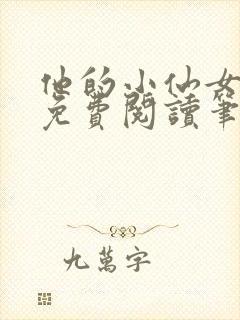 他的小仙女
免費閱讀筆
九萬字